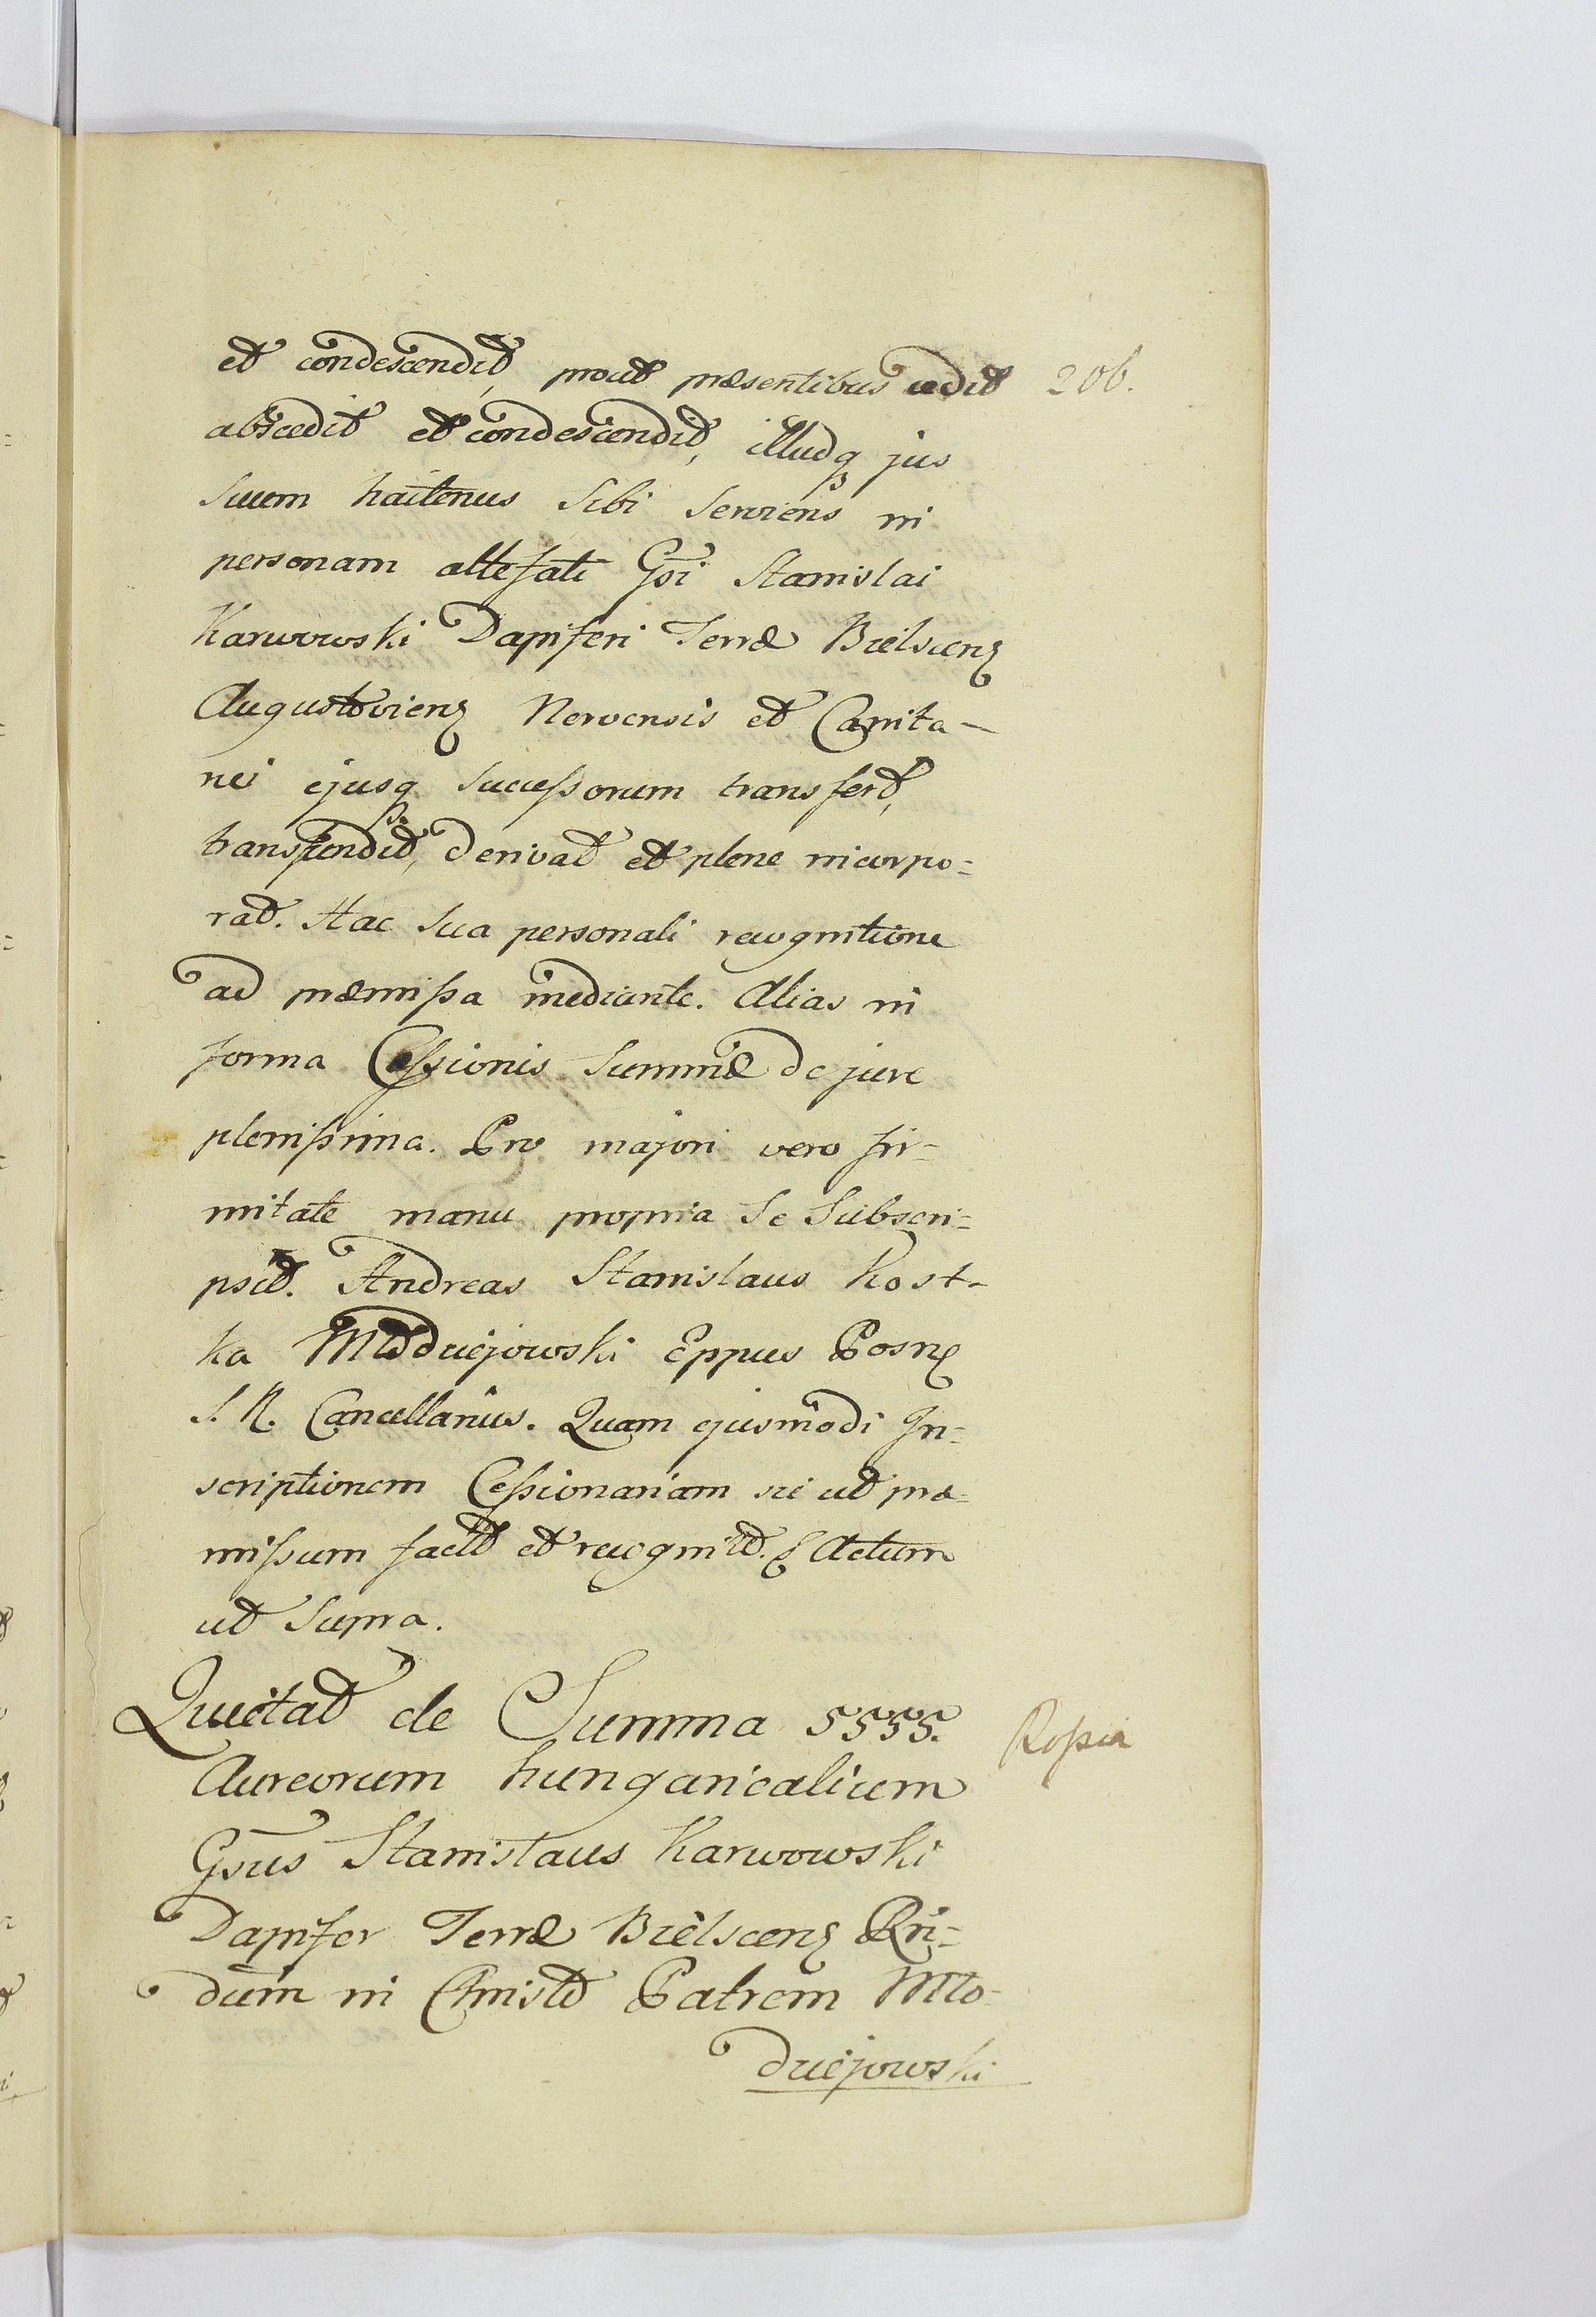 et condescendit, prout præsentibus cedit 206.
abscedit et condescendit, illudq jus
suum hactenus sibi serviens in
personam altefati Gsi Stanislai
Karwowski Dapiferi Terræ Bielscens
Augustoviens Nervensis et Capita-
nei ejusq successorum transfert,
transfundit, derivat et plene incorpo=
rat. Hac sua personali recognitione
ad præmissa mediante. Alias in
forma Cessionis Summæ de jure
plenissima. Pro majori vero fir-
mitate manu propria se subscri=
psit. Andreas Stanislaus Kost-
ka Młodziejowski Eppus Posn
S. R. Cancellarius. Quam ejusmodi In=
scriptionem Cessionariam sic ut præ=
missum factd et recognitd. Actum
ut supra.
Quietat de Summa 5555. Kopia
Aureorum hungaricalium
Gsus Stanislaus Karwowski
Dapifer Terræ Bielscens Rn=
dum in Christo Patrem Mło-
dziejowski